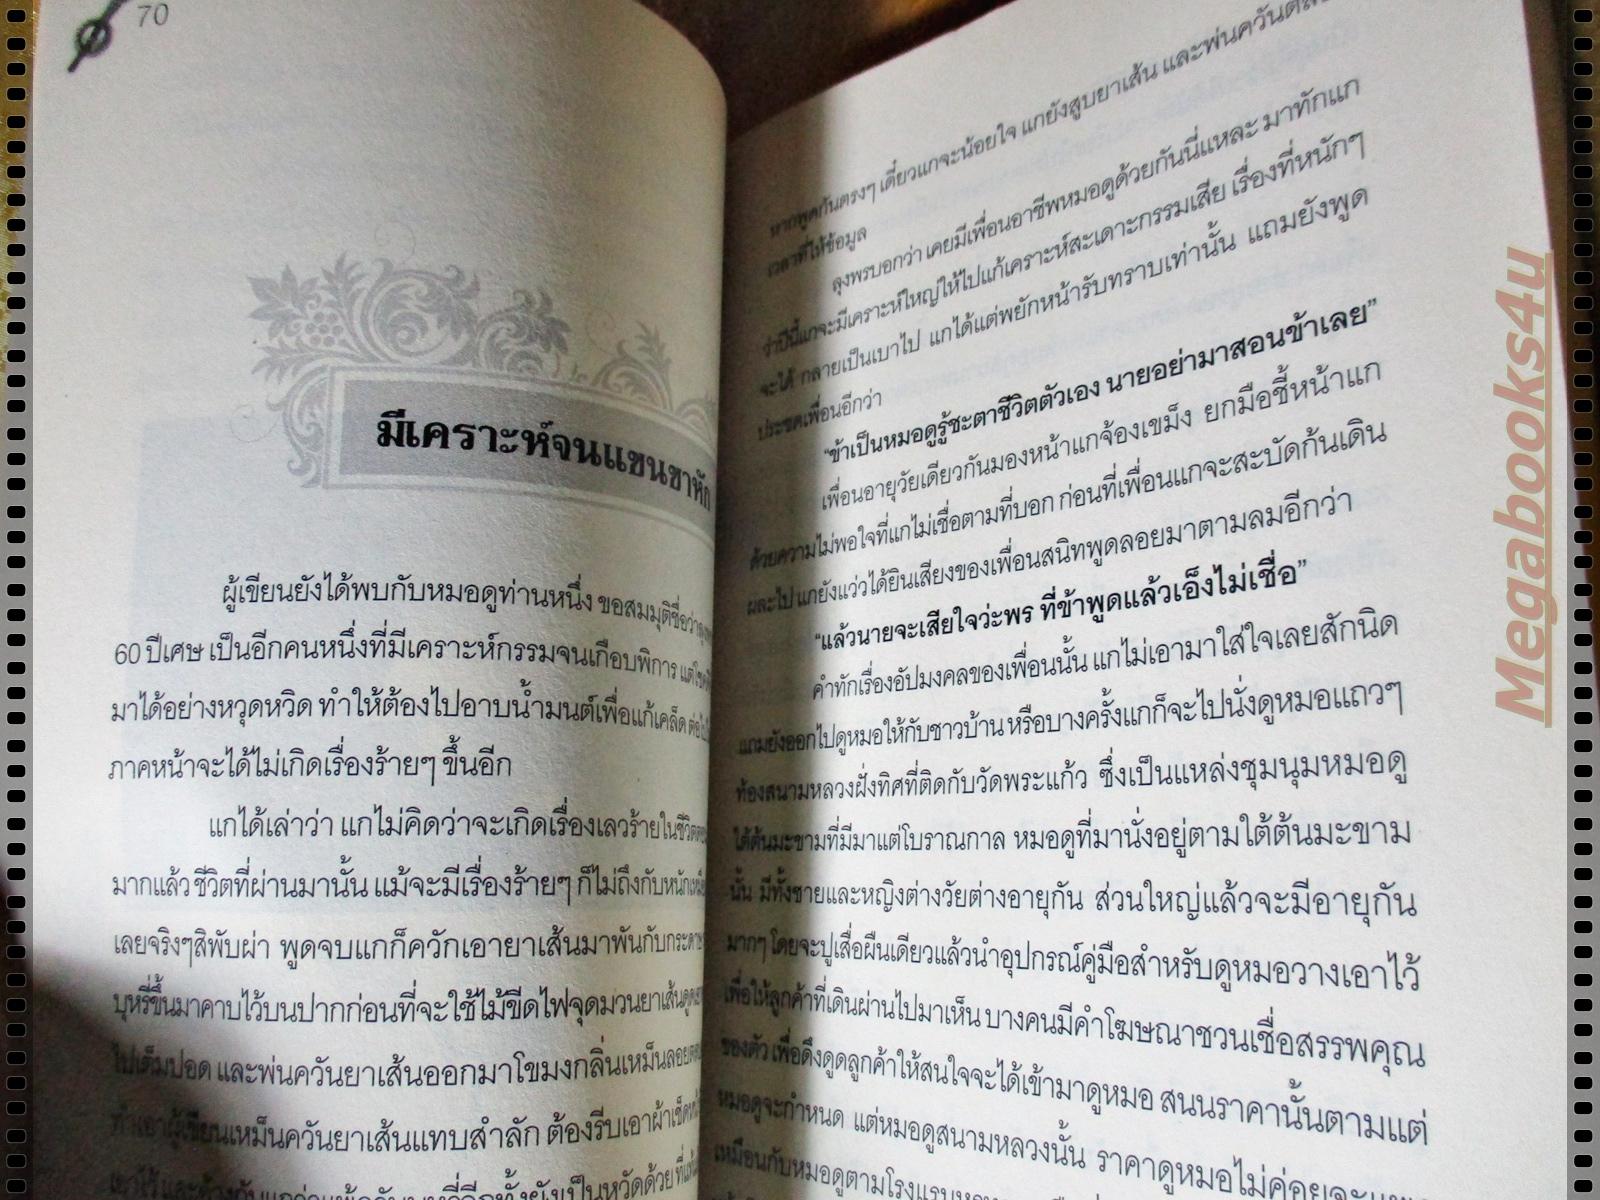 70
มีเคราะห์จนแขนขาหัก
ผู้เขียนยังได้พบกับหมอดูท่านหนึ่ง ขอสมมุติชื่อว่าลุง
60 ปีเศษ เป็นอีกคนหนึ่งที่มีเคราะห์กรรมจนเกือบพิการ แต่
มาได้อย่างหวุดหวิด ทำให้ต้องไปอาบน้ำมนต์เพื่อแก้เคล็ด
ภาคหน้าจะได้ไม่เกิดเรื่องร้ายๆ ขึ้นอีก
แกได้เล่าว่า แกไม่คิดว่าจะเกิดเรื่องเลวร้ายในชีวิต
มากแล้ว ชีวิตที่ผ่านมานั้น แม้จะมีเรื่องร้ายๆ ก็ไม่ถึงกับหนัก
เลยจริงๆสิพับผ่า พูดจบแกก็ควักเอายาเส้นมาพันกับกระดาษ
บุหรี่ขึ้นมาคาบไว้บนปากก่อนที่จะใช้ไม้ขีดไฟจุดมวนยาเส้น
ไปเต็มปอด และพ่นควันยาเส้นออกมาโขมงกลิ่นเหม็นลอย
ทำเอาผู้เขียนเหม็นควันยาเส้นแทบสำลัก ต้องรีบเอาผ้าเช็ด
หากพูดกันตรงๆ เดี๋ยวแกจะน้อยใจ แกยังสูบยาเส้น และพ่นควัน
เวลาที่ให้ข้อมูล
ลุงพรบอกว่า เคยมีเพื่อนอาชีพหมอดูด้วยกันนี่แหละ มาทักแก
ว่าปีนี้แกจะมีเคราะห์ใหญ่ให้ไปแก้เคราะห์สะเดาะกรรมเสีย เรื่องที่หนักๆ
จะได้ กลายเป็นเบาไป แกได้แต่พยักหน้ารับทราบเท่านั้น แถมยังพูด
ประชดเพื่อนอีกว่า
“ข้าเป็นหมอดูรู้ชะตาชีวิตตัวเอง นายอย่ามาสอนข้าเลย”
เพื่อนอายุวัยเดียวกันมองหน้าแกจ้องเขม็ง ยกมือชี้หน้าแก
ด้วยความไม่พอใจที่แกไม่เชื่อตามที่บอก ก่อนที่เพื่อนแกจะสะบัดก้นเดิน
ผละไป แกยังแว่วได้ยินเสียงของเพื่อนสนิทพูดลอยมาตามลมอีกว่า
“แล้วนายจะเสียใจว่ะพร ที่ข้าพูดแล้วเอ็งไม่เชื่อ”
คำทักเรื่องอัปมงคลของเพื่อนนั้น แกไม่เอามาใส่ใจเลยสักนิด
แถมยังออกไปดูหมอให้กับชาวบ้าน หรือบางครั้งแกก็จะไปนั่งดูหมอแถวๆ
ท้องสนามหลวงฝั่งทิศที่ติดกับวัดพระแก้ว ซึ่งเป็นแหล่งชุมนุมหมอดู
ใต้ต้นมะขามที่มีมาแต่โบราณกาล หมอดูที่มานั่งอยู่ตามใต้ต้นมะขาม
นั้น มีทั้งชายและหญิงต่างวัยต่างอายุกัน ส่วนใหญ่แล้วจะมีอายุกัน
มากๆ โดยจะปูเสื่อผืนเดียวแล้วนำอุปกรณ์คู่มือสำหรับดูหมอวางเอาไว้
เพื่อให้ลูกค้าที่เดินผ่านไปมาเห็น บางคนมีคำโฆษณาชวนเชื่อสรรพคุณ
ของตัว เพื่อดึงดูดลูกค้าให้สนใจจะได้เข้ามาดูหมอ สนนราคานั้นตามแต่
หมอดูจะกำหนด แต่หมอดูสนามหลวงนั้น ราคาดูหมอไม่ค่อยจะแพง
เหมือนกับหมอดูตามโรงแรม
Megabooks4u